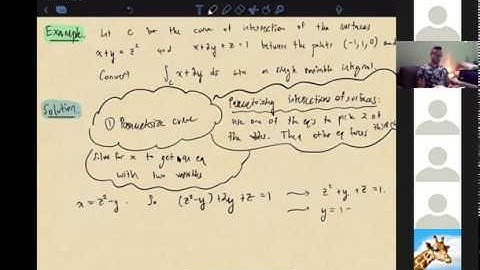 Example. Let C be the curve of intersection of the surfaces
x+y = z² and x+2y+z = 1 between the points (-1,1,0) and
Convert ∫_C x+2y ds into a single variable integral.
Solution.
① Parametrize curve
Parametrizing intersections of surfaces:
use one of the eqs to pick 2 of
the vbles. Then other eq forces third
Solve for x to get one eq
with two variables
x = z²-y. So (z²-y)+2y+z = 1 → z²+y+z = 1.
→ y = 1-